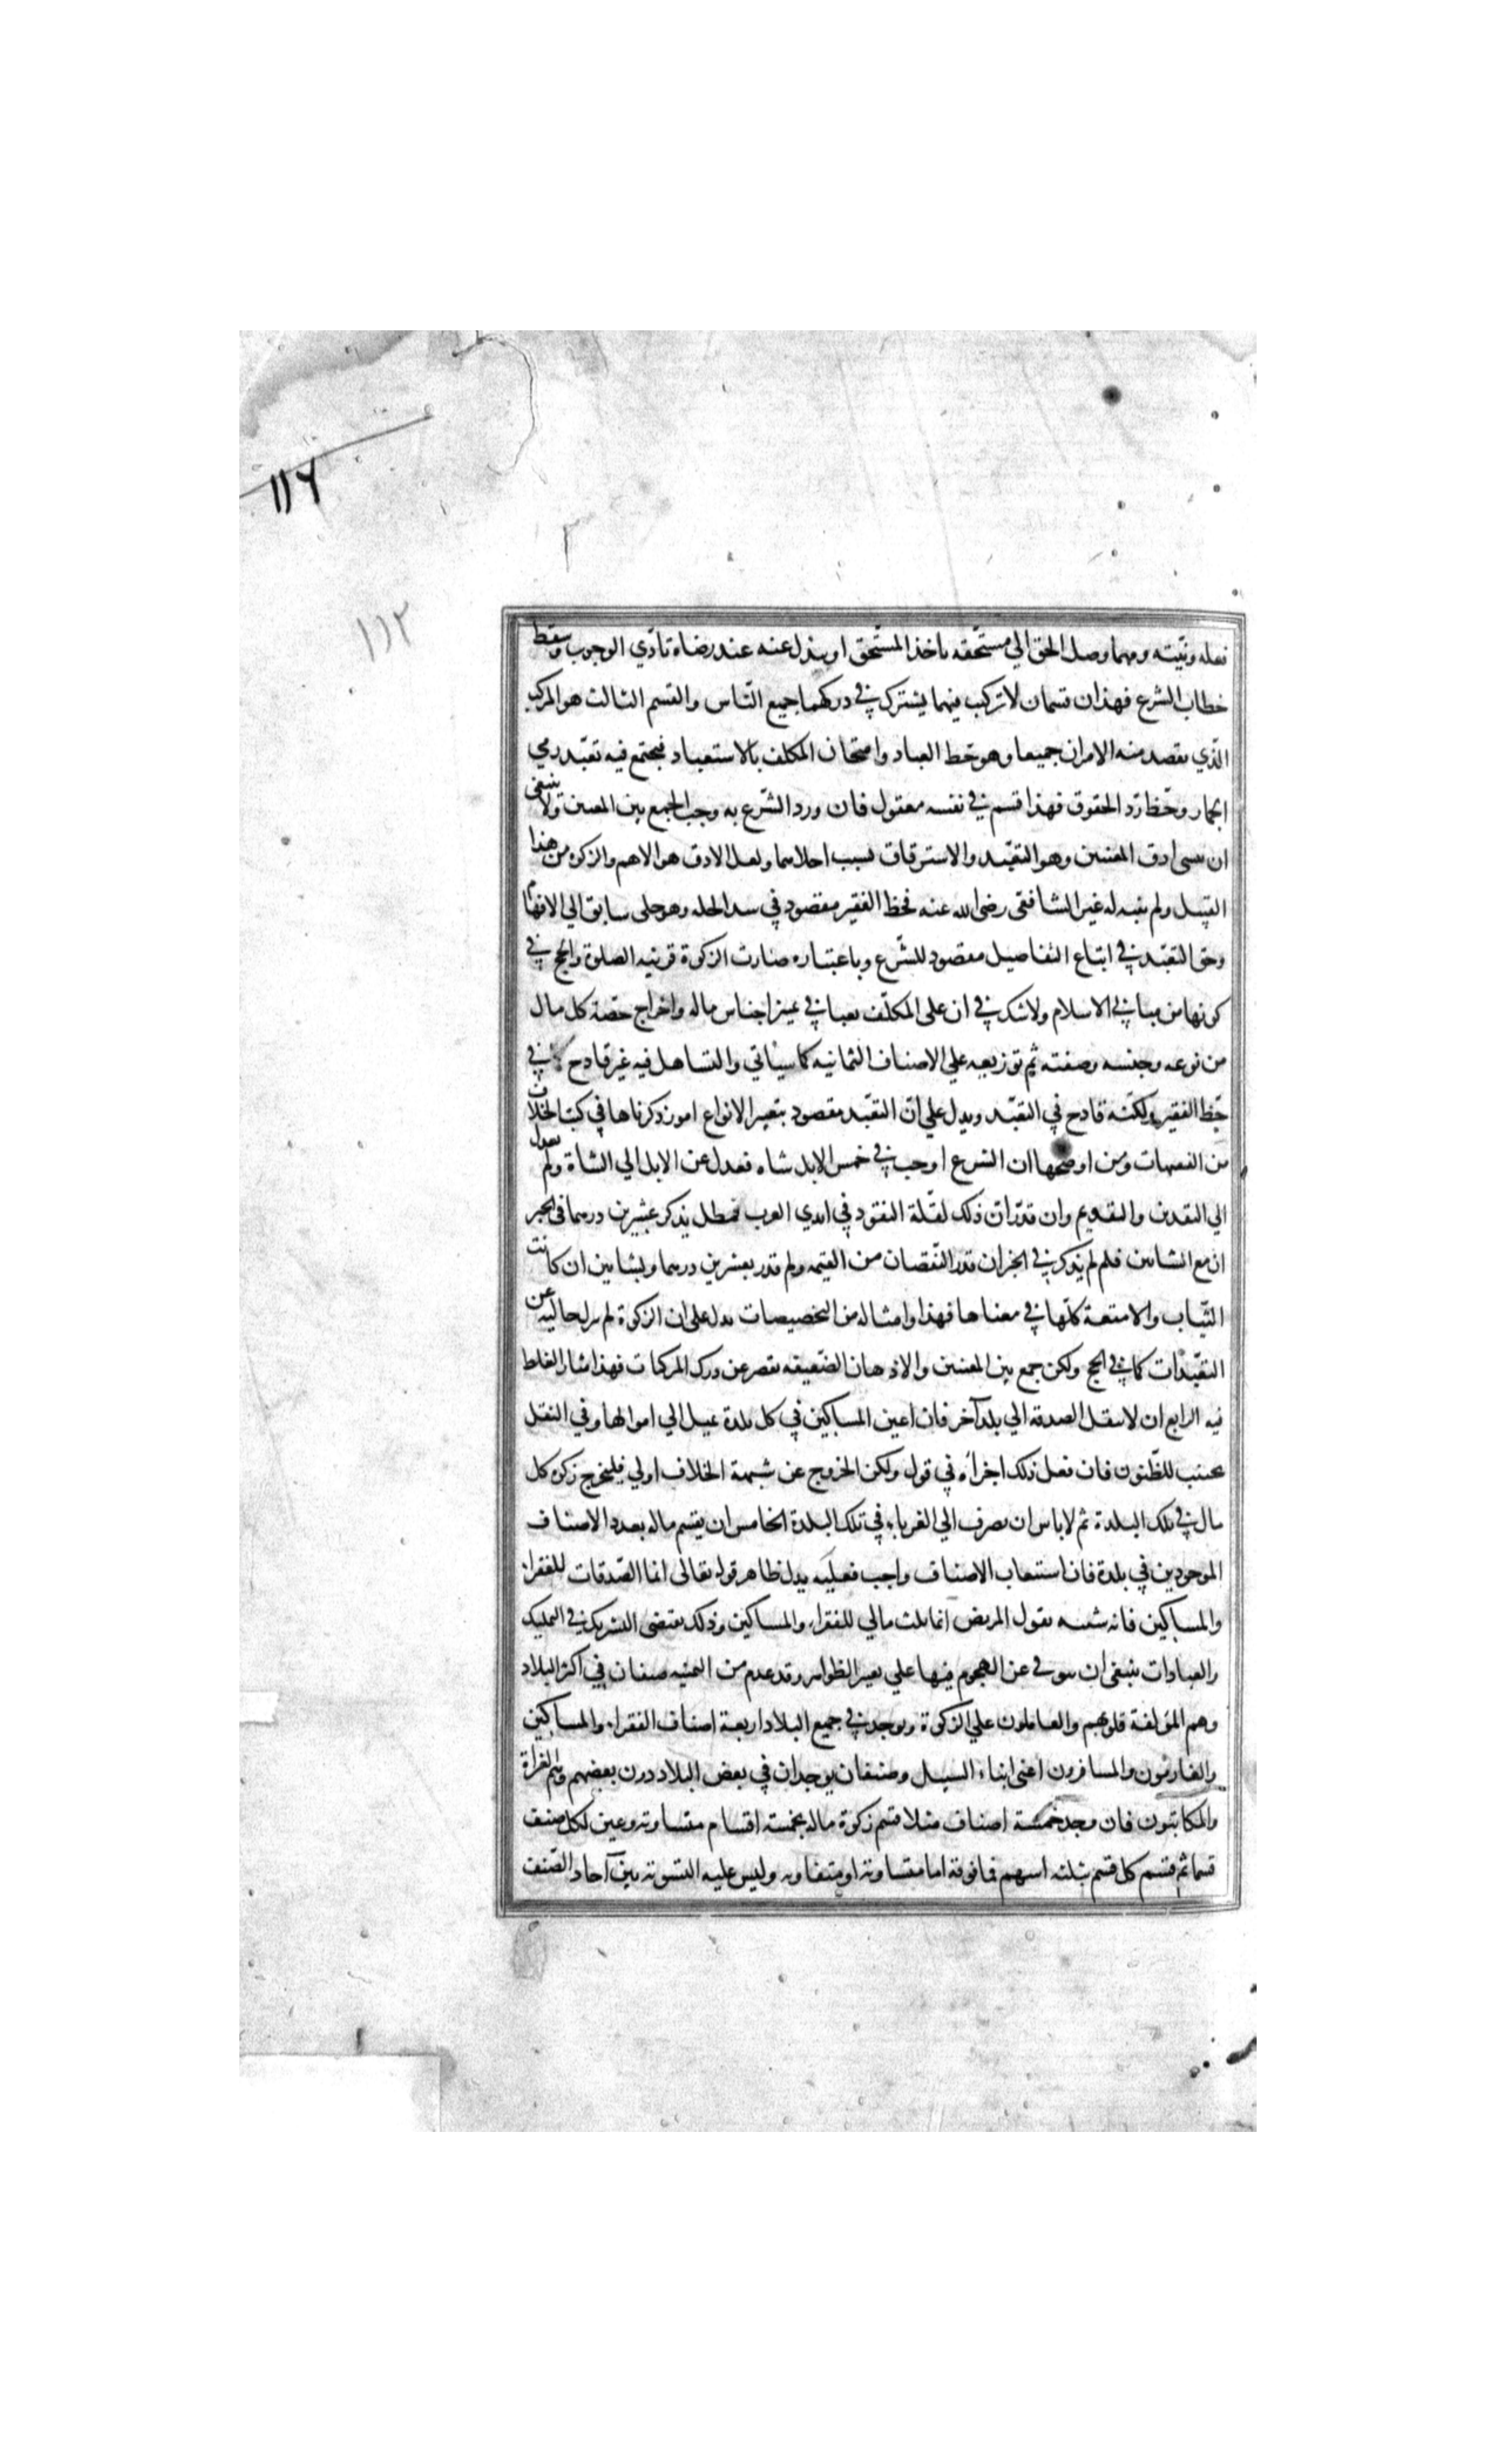 ١١٦
١١٢
فعله ونيته ومهما وصل الحق الي مستحقه باخذ المستحق او ببذل عنه عند رضاه تادّي الوجوب وسقط
خطاب الشرع فهذان قسمان لا تركيب فيهما يشترك في دركهما جميع النّاس والقسم الثالث هو المركب
الّذي يقصد منه الامران جميعا وهو حظ العباد وامتحان المكلف بالاستعباد فيجتمع فيه تعبّد رمي
الجمار وحظ ردّ الحقوق فهذا قسم في نفسه معقول فان ورد الشّرع به وجب الجمع بين المعنيين ولا ينبغي
ان ينسى ادق المعنيين وهو التعبّد والاسترقاق بسبب اجلاهما ولعل الادق هو الاهم والزكوة من هذا
القبيل ولم ينبه له غير الشافعي رضى الله عنه فحظ الفقير مقصود في سد الخلة وهو جلي سابق الي الافهام
وحق التعبّد في اتباع التفاصيل مقصود للشّرع وباعتباره صارت الزكوة قرينة الصلوة والحج في
كونها من مباني الاسلام ولا شك في ان على المكلّف تعبا في تميز اجناس ماله واخراج حصّة كل مال
من نوعه وجنسه وصفته ثم توزيعه علي الاصناف الثمانيه كما سيأتي والتساهل فيه غير قادح في
حظ الفقير ولكنّه قادح في التعبّد ويدل علي انّ التعبّد مقصود بتعيين الانواع امور ذكرناها في كتب الخلاف
من الفقهيات ومن اوضحها ان الشرع اوجب في خمس الابل شاه فعدل عن الابل الي الشاة ولم يعدل
الي النقدين والتقويم وان قدّر انّ ذلك لقلّة النقود في ايدي العرب فبطل بذكر عشرين درهما في الجبر
ان مع الشاتين فلم لم يذكر في الجبران قدر النّقصان من القيمه ولم قدر بعشرين درهما وبشاتين ان كانت
الثّياب والامتعة كلّها في معناها فهذا وامثاله من التخصيصات يدل على ان الزكوة لم تترك خالية عن
التعبّدات كما في الحج ولكن جمع بين المعنيين والاذهان الضّعيفه تقصر عن درك المركبات فهذا شار الغلط
فيه الرابع ان لا ينقل الصدقه الي بلد آخر فان اعين المساكين في كل بلدة تميل الي اموالها وفي النقل
تخييب للظّنون فان فعل ذلك اجزأه في قول ولكن الخروج عن شبهة الخلاف اولي فليخرج زكوة كل
مال في تلك البلدة ثم لا باس ان يصرف الي الغرباء في تلك البلدة الخامس ان يقسم ماله بعدد الاصناف
الموجودين في بلدة فان استيعاب الاصناف واجب فعليه يدل ظاهر قوله تعالى انما الصّدقات للفقراء
والمساكين فانه يشبه بقول المريض انما ثلث مالي للفقراء والمساكين وذلك يقتضى التشريك في التمليك
والعبادات ينبغي ان يتوقى عن الهجوم فيها علي تعبير الظواهر وقد عدم من الثمنيه صنفان في اكثر البلاد
وهم المؤلفة قلوبهم والعاملون علي الزكوة ويوجد في جميع البلاد اربعة اصناف الفقراء والمساكين
والغارمون والمسافرون اعنى ابناء السبيل وصنفان يوجدان في بعض البلاد درن بعضهم وهم الغزاة
والمكاتبون فان وجد خمسة اصناف مثلا قسم زكوة ماله بخمسة اقسام متساوية وعين لكل صنف
قسما ثم قسم كل قسم بثلثة اسهم فما فوقه اما متساوية او متفاوته وليس عليه التسوية بين آحاد الصّنف